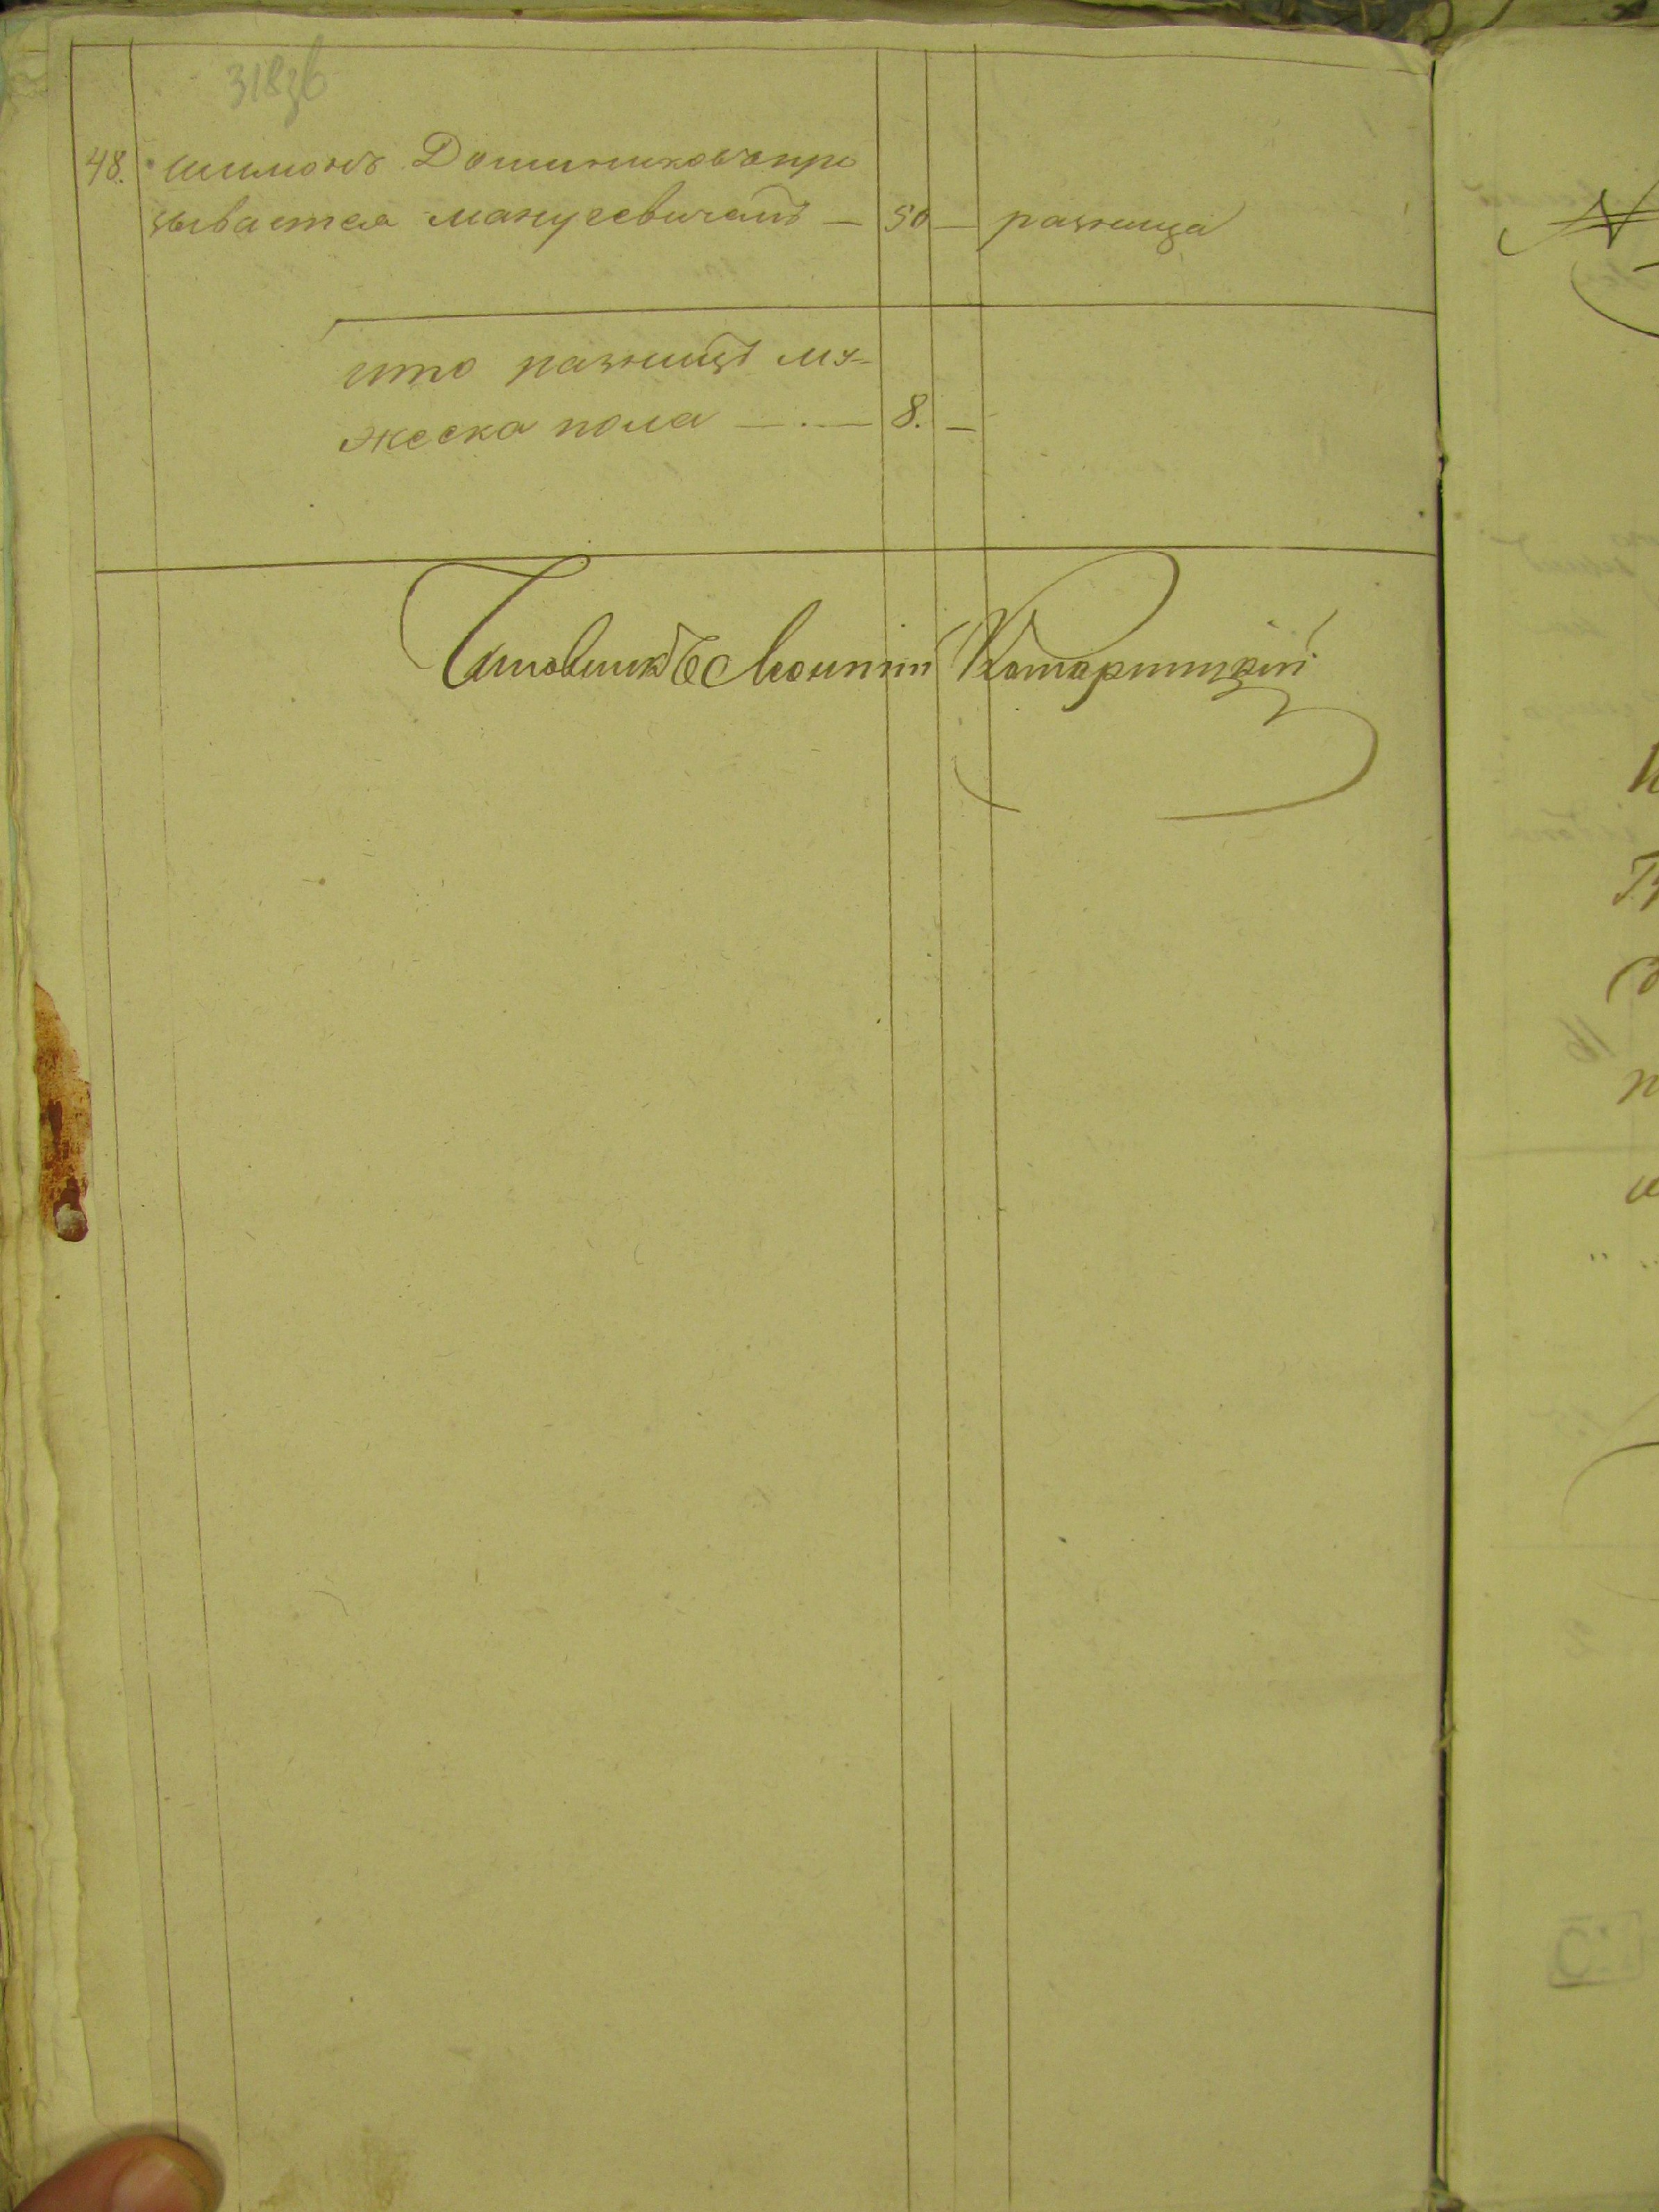 318зв
48. Шимонъ Доминиковъ про
зывается Мацусевичемъ — 50 — разница
Что разницъ му-
жеска пола — . — 8. —
Чиновникъ Котаржицкій